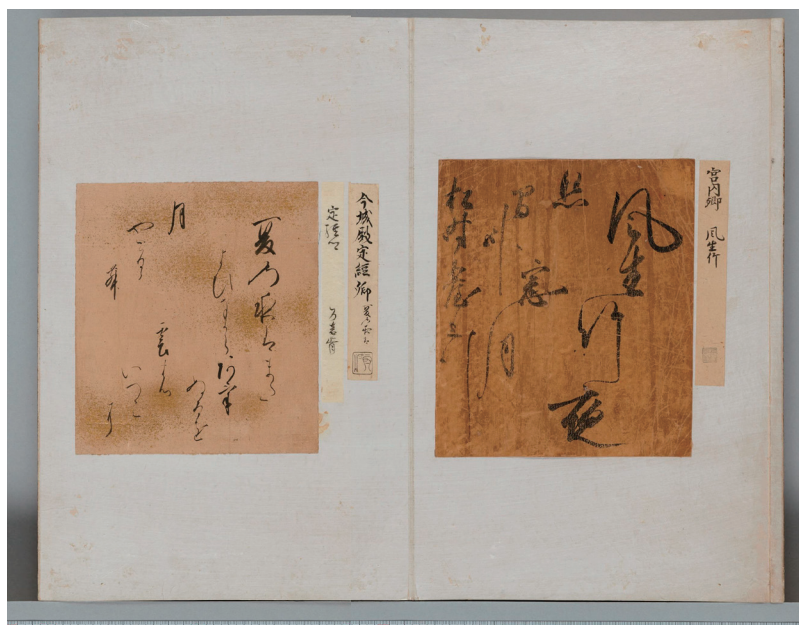 宮内卿 風生竹
風生
竹夜
窓月
間臥
照
松時臺上行
今城殿定経卿 夏の夜は
定経卿
夏の夜はまた
よひなからあけ
ぬるを
雲の
いつこ
に
月
やとる